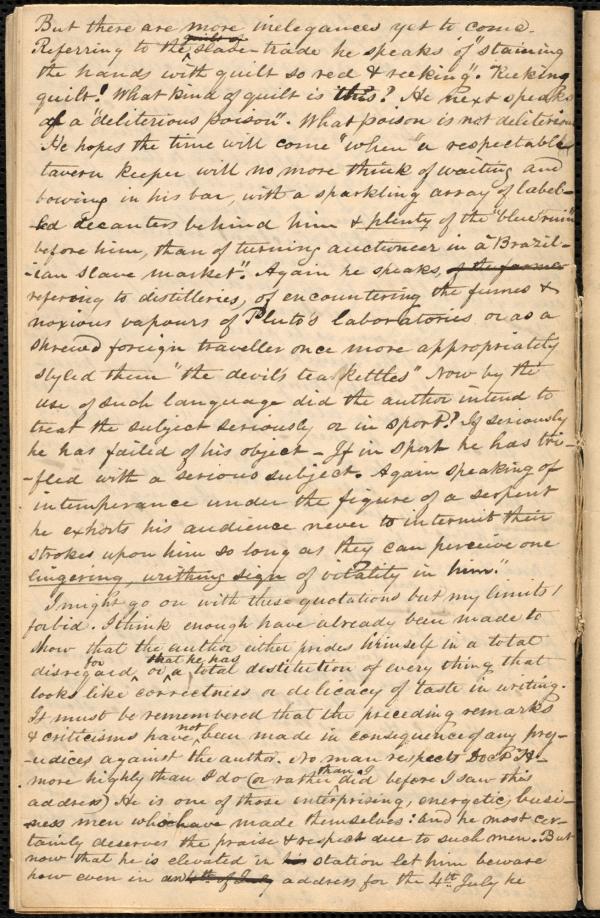 But there are more inelegances yet to come.
Referring to the guilt of slave-trade he speaks of "staining
the hands with guilt so red & reeking". Reeking
guilt! What kind of guilt is this? He next speaks
of a "deliterious poison". What poison is not deliterious
He hopes the time will come "when "a respectable
tavern keeper will no more think of waiting and
bowing in his bar, with a sparkling array of label-
-led decanters behind him & plenty of the "blue ruin"
before him, than of turning auctioneer in a "Brazil-
-ian slave market". Again he speaks, of the former
refering to distilleries, of encountering the fumes &
noxious vapours of Pluto's laboratories or as a
shrewd foreign traveller once more appropriately
styled them "the devil's tea kettles" Now by the
use of such language did the author intend to
treat the subject seriously or in sport? If seriously
he has failed of his object – If in sport he has tri-
-fled with a serious subject. Again speaking of
intemperance under the figure of a serpent
he exhorts his audience never to intermit their
strokes upon him so long as they can perceive one
lingering, writhing sign of vitality in him."
I might go on with these quotations but my limits
forbid. I think enough have already been made to
show that the author either prides himself in a total
disregard for or that he has a total destitution of every thing that
looks like correctness or delicacy of taste in writing.
It must be remembered that the preceding remarks
& criticisms have not been made in consequence of any prej-
-udices against the author. No man respects Doct H-
more highly than I do (or rather than I did before I saw this
address) He is one of those enterprising, energetic, busi-
-ness men who have made themselves: and he most cer-
tainly deserves the praise & respect due to such men. But
now that he is elevated in his station let him beware
how even in an 4th of July address for the 4th July he